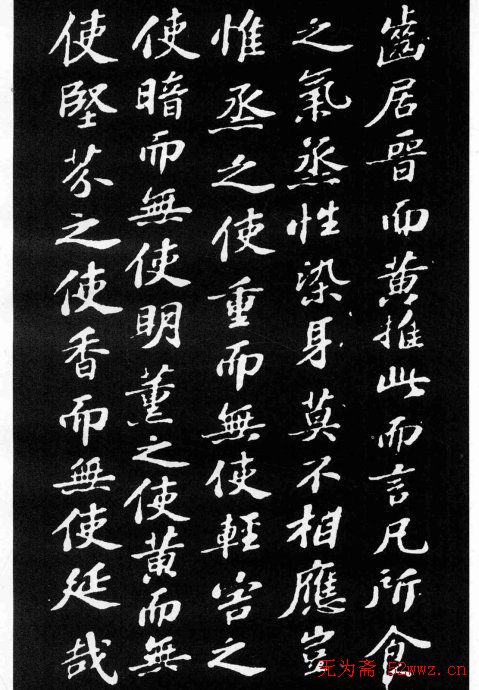 齒居晉而黃推此而言凡所食
之氣蒸性染身莫不相應豈
惟蒸之使重而無使輕害之
使暗而無使明薰之使黃而無
使堅芬之使香而無使延哉
无为斋 52wwz.cn